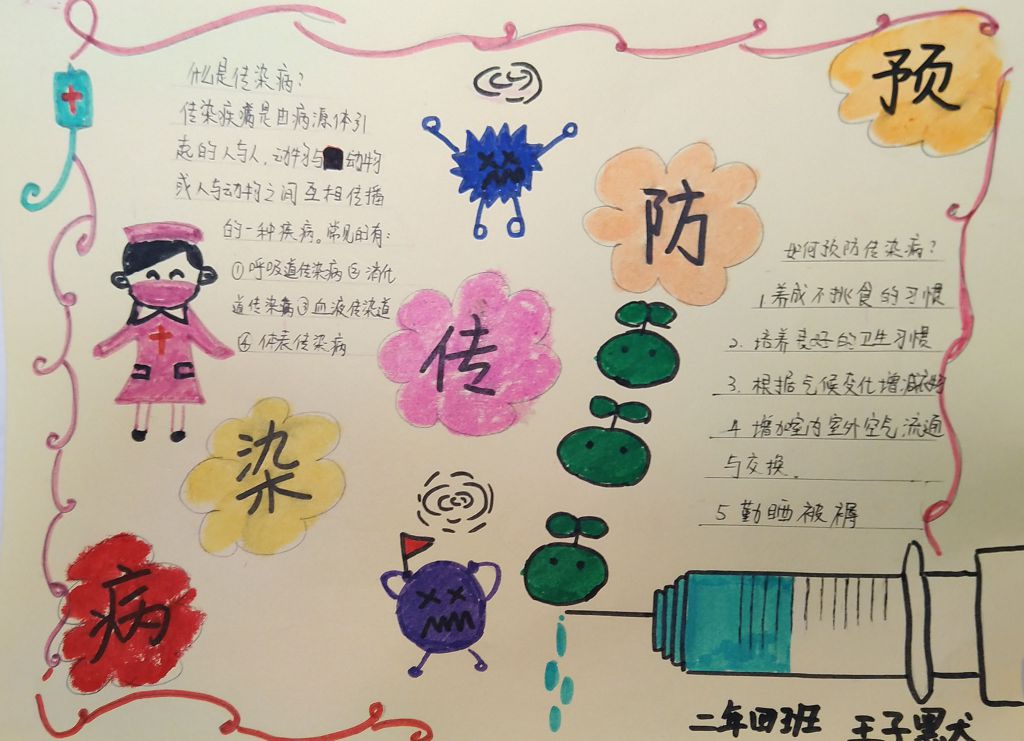 预
防
传
染
病
什么是传染病?
传染疾病是由病源体引
起的人与人,动物与动物
或人与动物之间互相传播
的一种疾病。常见的有:
①呼吸道传染病②消化
道传染病③血液传染道
④体表传染病
如何预防传染病?
1.养成不挑食的习惯
2.培养良好的卫生习惯
3.根据气候变化增减衣物
4 增加室内室外空气流通
与交换.
5 勤晒被褥
二年四班 王子